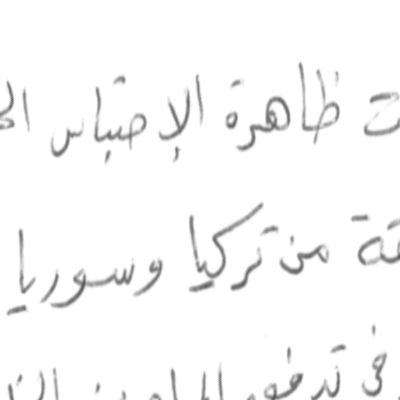 ت ظاهرة الإحتباس الح
قة من تركيا وسوريا
في تدفق المياه من